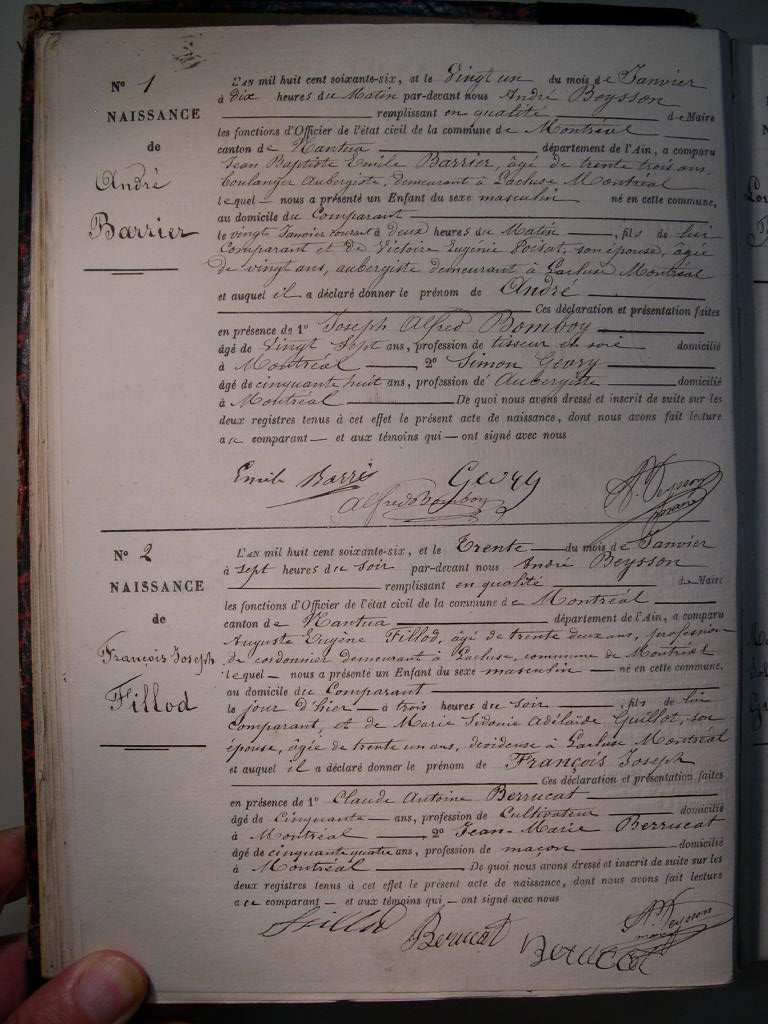 N° 1
NAISSANCE
de
André
Barrier
L'AN mil huit cent soixante-six, et le Vingt un du mois de Janvier
à Dix heures du Matin par-devant nous André Beysson
remplissant en qualité de Maire
les fonctions d'Officier de l'état civil de la commune de Montréal
canton de Nantua département de l'Ain, a comparu
Jean Baptiste Emile Barrier, âgé de trente trois ans,
boulanger Aubergiste, demeurant à Lacluse, Montréal
lequel nous a présenté un Enfant du sexe masculin né en cette commune,
au domicile du Comparant
le vingt Janvier courant à deux heures du Matin, fils de lui
Comparant et de Victoire Eugénie son épouse, âgée
de vingt ans, aubergiste demeurant à Lacluse Montréal
et auquel il a déclaré donner le prénom de André
Ces déclaration et présentation faites
en présence de 1° Joseph Alfred Bomboy
âgé de Vingt Sept ans, profession de tisseur en soie domicilié
à Montréal 2° Simon Geory
âgé de cinquante huit ans, profession de Aubergiste domicilié
à Montréal De quoi nous avons dressé et inscrit de suite sur les
deux registres tenus à cet effet le présent acte de naissance, dont nous avons fait lecture
au comparant et aux témoins qui ont signé avec nous
Emile Geory
Alfred Bomboy
N° 2
NAISSANCE
de
François Joseph
Fillod
L'AN mil huit cent soixante-six, et le Trente du mois de Janvier
à sept heures du soir par-devant nous André Beysson
remplissant en qualité de Maire
les fonctions d'Officier de l'état civil de la commune de Montréal
canton de Nantua département de l'Ain, a comparu
Auguste Eugène Fillod, âgé de trente deux ans, profession
de cordonnier demeurant à Lacluse, commune de Montréal
lequel nous a présenté un Enfant du sexe masculin né en cette commune,
au domicile du Comparant
le jour d'hier à trois heures du soir, fils de lui
comparant, et de Marie Sidonie Adélaïde Guillot, son
épouse, âgée de trente un ans, à Lacluse Montréal
et auquel il a déclaré donner le prénom de François Joseph
Ces déclaration et présentation faites
en présence de 1° Claude Antoine Berrucat
âgé de Cinquante ans, profession de Cultivateur domicilié
à Montréal 2° Jean-Marie Berrucat
âgé de cinquante quatre ans, profession de maçon domicilié
à Montréal De quoi nous avons dressé et inscrit de suite sur les
deux registres tenus à cet effet le présent acte de naissance, dont nous avons fait lecture
au comparant et aux témoins qui ont signé avec nous
Fillod Berucat Berucat